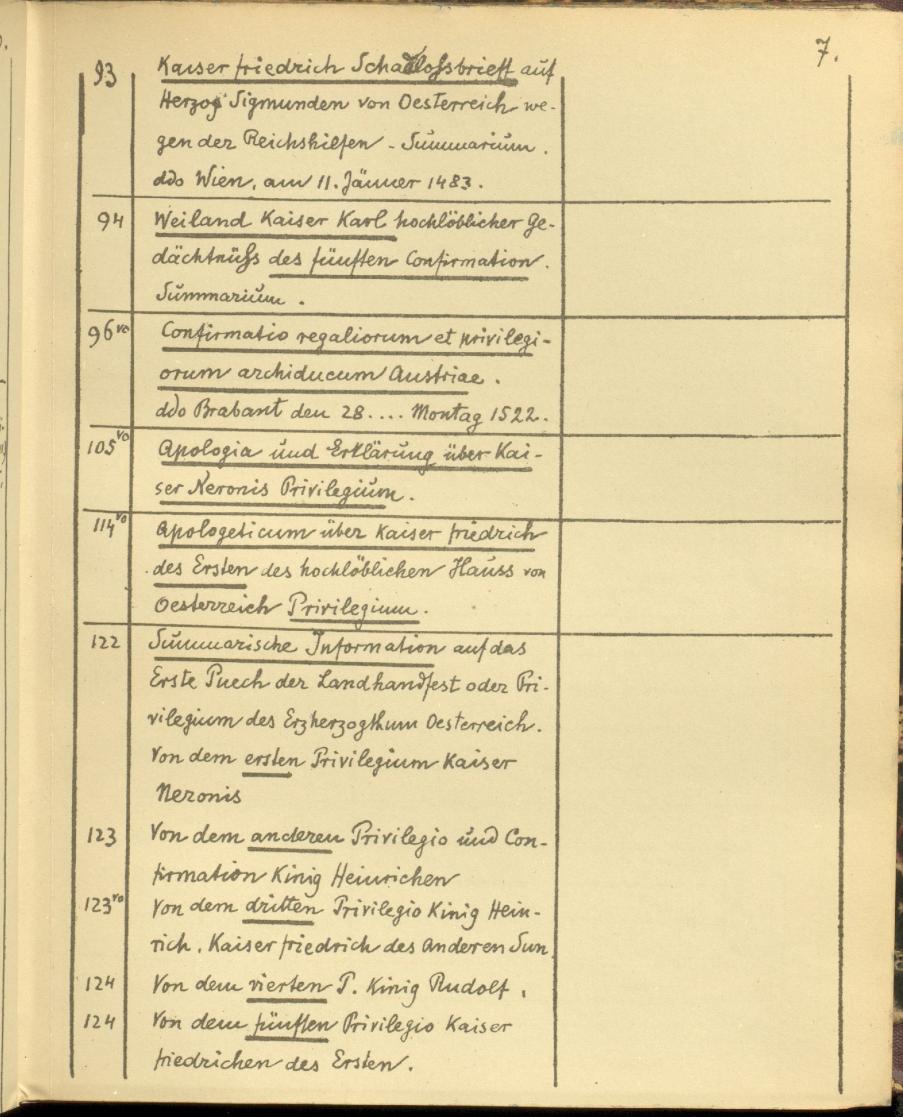 7.
93 Kaiser friedrich Schadlossbrieff auf
Herzog Sigmunden von Oesterreich we-
gen der Reichshilfen - Summarium.
ddo Wien, am 11. Jänner 1483.
94 Weiland Kaiser Karl hochlöblicher Ge-
dächtnüss des fünften Confirmation.
Summarium.
96vo Confirmatio regaliorum et privilegi-
orum archiducum Austriae.
ddo Brabant den 28.... Montag 1522.
105vo Apologia und Erklärung über Kai-
ser Neronis Privilegium.
114vo Apologeticum über Kaiser friedrich
des Ersten des hochlöblichen Hauss von
Oesterreich Privilegium.
122 Summarische Information auf das
Erste Puech der Landhandfest oder Pri-
vilegium des Erzherzogthum Oesterreich.
Von dem ersten Privilegium Kaiser
Neronis
123 Von dem anderen Privilegio und Con-
firmation Kinig Heinrichen
123vo Von dem dritten Privilegio Kinig Hein-
rich. Kaiser friedrich des Anderen Sun.
124 Von dem vierten P. Kinig Rudolf.
124 Von dem fünften Privilegio Kaiser
friedrichen des Ersten.